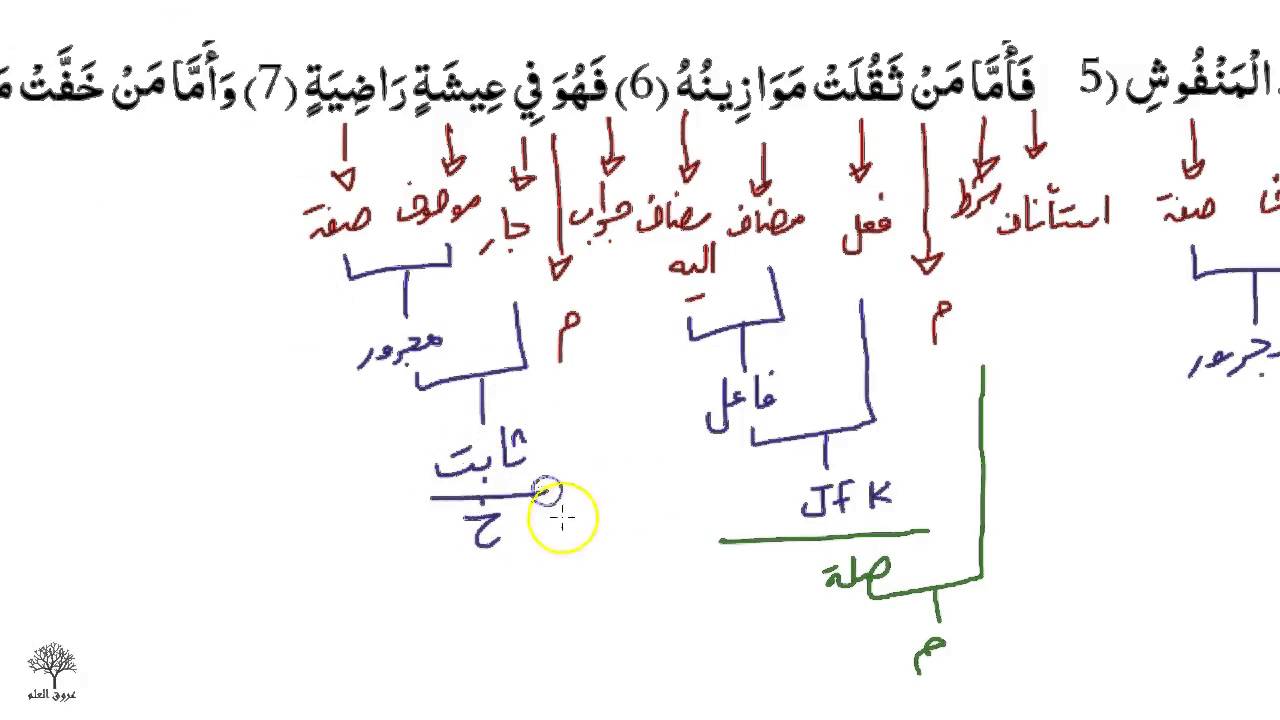 الْمَنْفُوشِ (5 فَأَمَّا مَنْ ثَقُلَتْ مَوَازِينُهُ (6) فَهُوَ فِي عِيشَةٍ رَاضِيَةٍ (7) وَأَمَّا مَنْ خَفَّتْ
صفة استأناف شرط فعل مضاف مضاف جواب جار موصوف صفة
اليه
م م
جرور مجرور
فاعل
ثابت
JfK
خ
صلة
م
عروق العلم